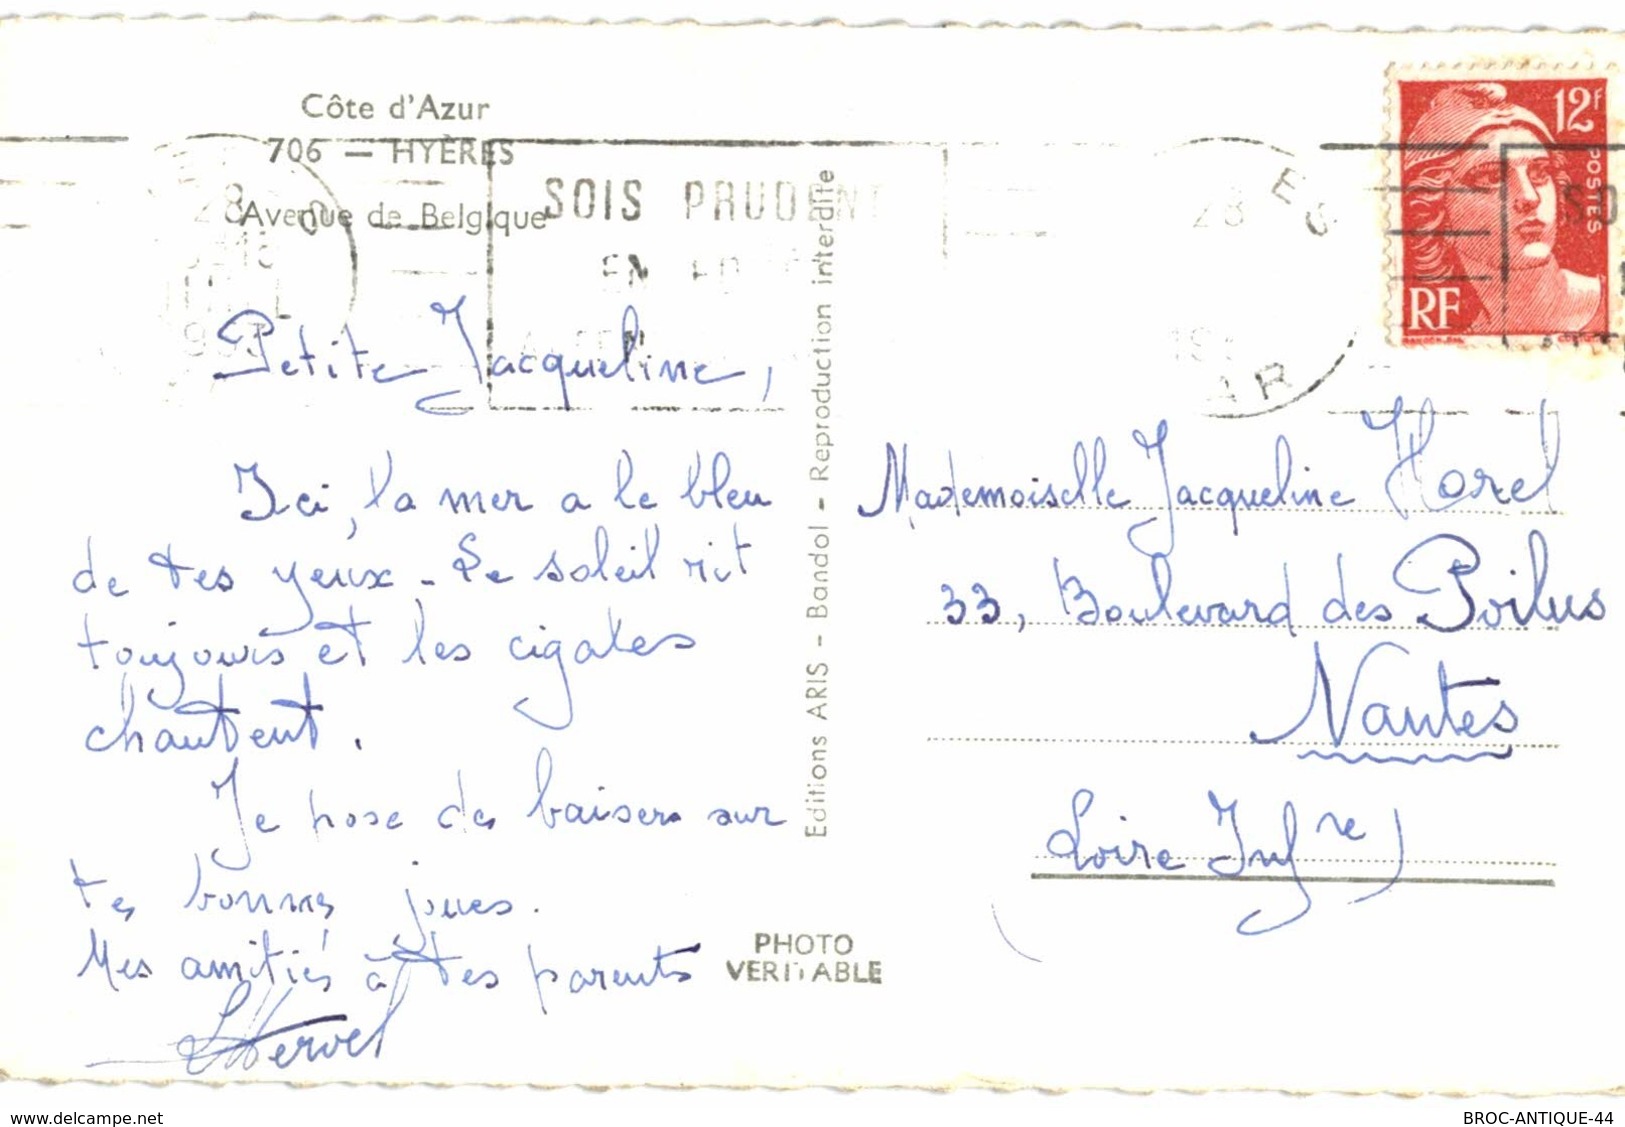 Côte d'Azur
706 — HYÈRES
Avenue de Belgique
SOIS PRUDENT
EN
Petite Jacqueline,
Ici, la mer a le bleu
de tes yeux - Le soleil rit
toujours et les cigales
chantent.
Je pose des baisers sur
tes bonnes joues.
Mes amitiés à tes parents
Editions ARIS - Bandol - Reproduction interdite
PHOTO
VERITABLE
28
12F
POSTES
RF
Mademoiselle Jacqueline Horel
33, Boulevard des Poilus
Nantes
Loire Infre)
www.delcampe.net
BROC-ANTIQUE-44